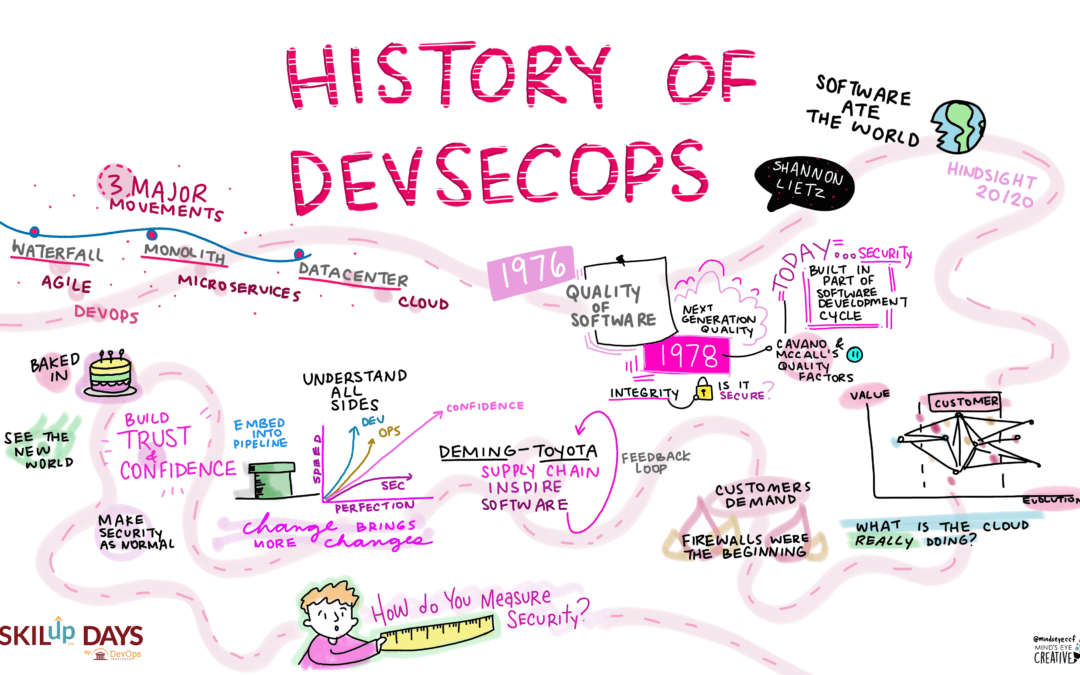 HISTORY OF
DEVSECOPS
SOFTWARE
ATE
THE WORLD
SHANNON
LIETZ
HINDSIGHT
20/20
3 MAJOR
MOVEMENTS
WATERFALL
MONOLITH
DATACENTER
AGILE
MICROSERVICES
CLOUD
DEVOPS
1976
QUALITY
OF
SOFTWARE
NEXT
GENERATION
QUALITY
1978
TODAY...SECURITY
BUILT IN
PART OF
SOFTWARE
DEVELOPMENT
CYCLE
CAVANO &
MCCALL'S
QUALITY
FACTORS
INTEGRITY
IS IT
SECURE?
BAKED
IN
SEE THE
NEW
WORLD
BUILD
TRUST
&
CONFIDENCE
MAKE
SECURITY
AS NORMAL
EMBED
INTO
PIPELINE
UNDERSTAND
ALL
SIDES
SPEED
DEV
OPS
CONFIDENCE
SEC
PERFECTION
change BRINGS
MORE changes
DEMING-TOYOTA
SUPPLY CHAIN
INSPIRE
SOFTWARE
FEEDBACK
LOOP
CUSTOMERS
DEMAND
FIREWALLS WERE
THE BEGINNING
VALUE
CUSTOMER
EVOLUTION
WHAT IS THE CLOUD
REALLY DOING?
HOW do You Measure
Security?
SKILup DAYS
by DevOps
INSTITUTE
@mindseyeccf
MIND'S EYE
CREATIVE